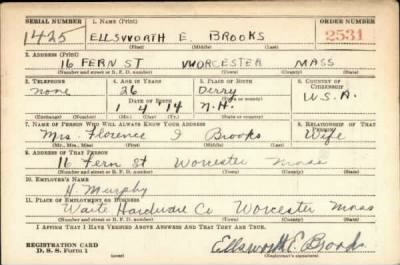 SERIAL NUMBER 1. NAME (Print) ORDER NUMBER
1425 ELLSWORTH E. BROOKS 2531
(First) (Middle) (Last)
2. ADDRESS (Print)
16 FERN ST WORCESTER MASS
(Number and street or R. F. D. number) (Town) (County) (State)
3. TELEPHONE 4. AGE IN YEARS 5. PLACE OF BIRTH 6. COUNTRY OF CITIZENSHIP
none 26 Derry U.S.A.
DATE OF BIRTH (Town or county)
1 4 14 N.H.
(Exchange) (Number) (Mo.) (Day) (Yr.) (State or country)
7. NAME OF PERSON WHO WILL ALWAYS KNOW YOUR ADDRESS 8. RELATIONSHIP OF THAT PERSON
Mrs. Florence I Brooks Wife
(Mr., Mrs., Miss) (First) (Middle) (Last)
9. ADDRESS OF THAT PERSON
16 Fern St Worcester Mass
(Number and street or R. F. D. number) (Town) (County) (State)
10. EMPLOYER'S NAME
H. Murphy
11. PLACE OF EMPLOYMENT OR BUSINESS
Waite Hardware Co Worcester Mass
(Number and street or R. F. D. number) (Town) (County) (State)
I AFFIRM THAT I HAVE VERIFIED ABOVE ANSWERS AND THAT THEY ARE TRUE.
REGISTRATION CARD
D. S. S. FORM 1 Ellsworth E. Brooks
(Registrant's signature)